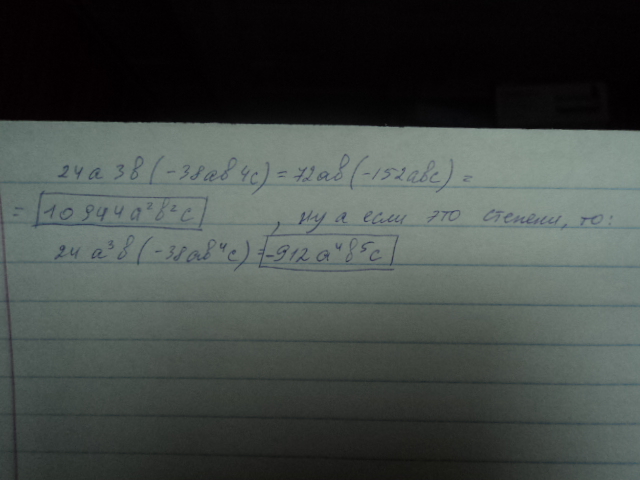 24a 3b (-38ab 4c) = 72ab (-152abc) =
= 10944a²b²c , ну а если это степени, то:
24a³b (-38ab⁴c) = -912a⁴b⁵c